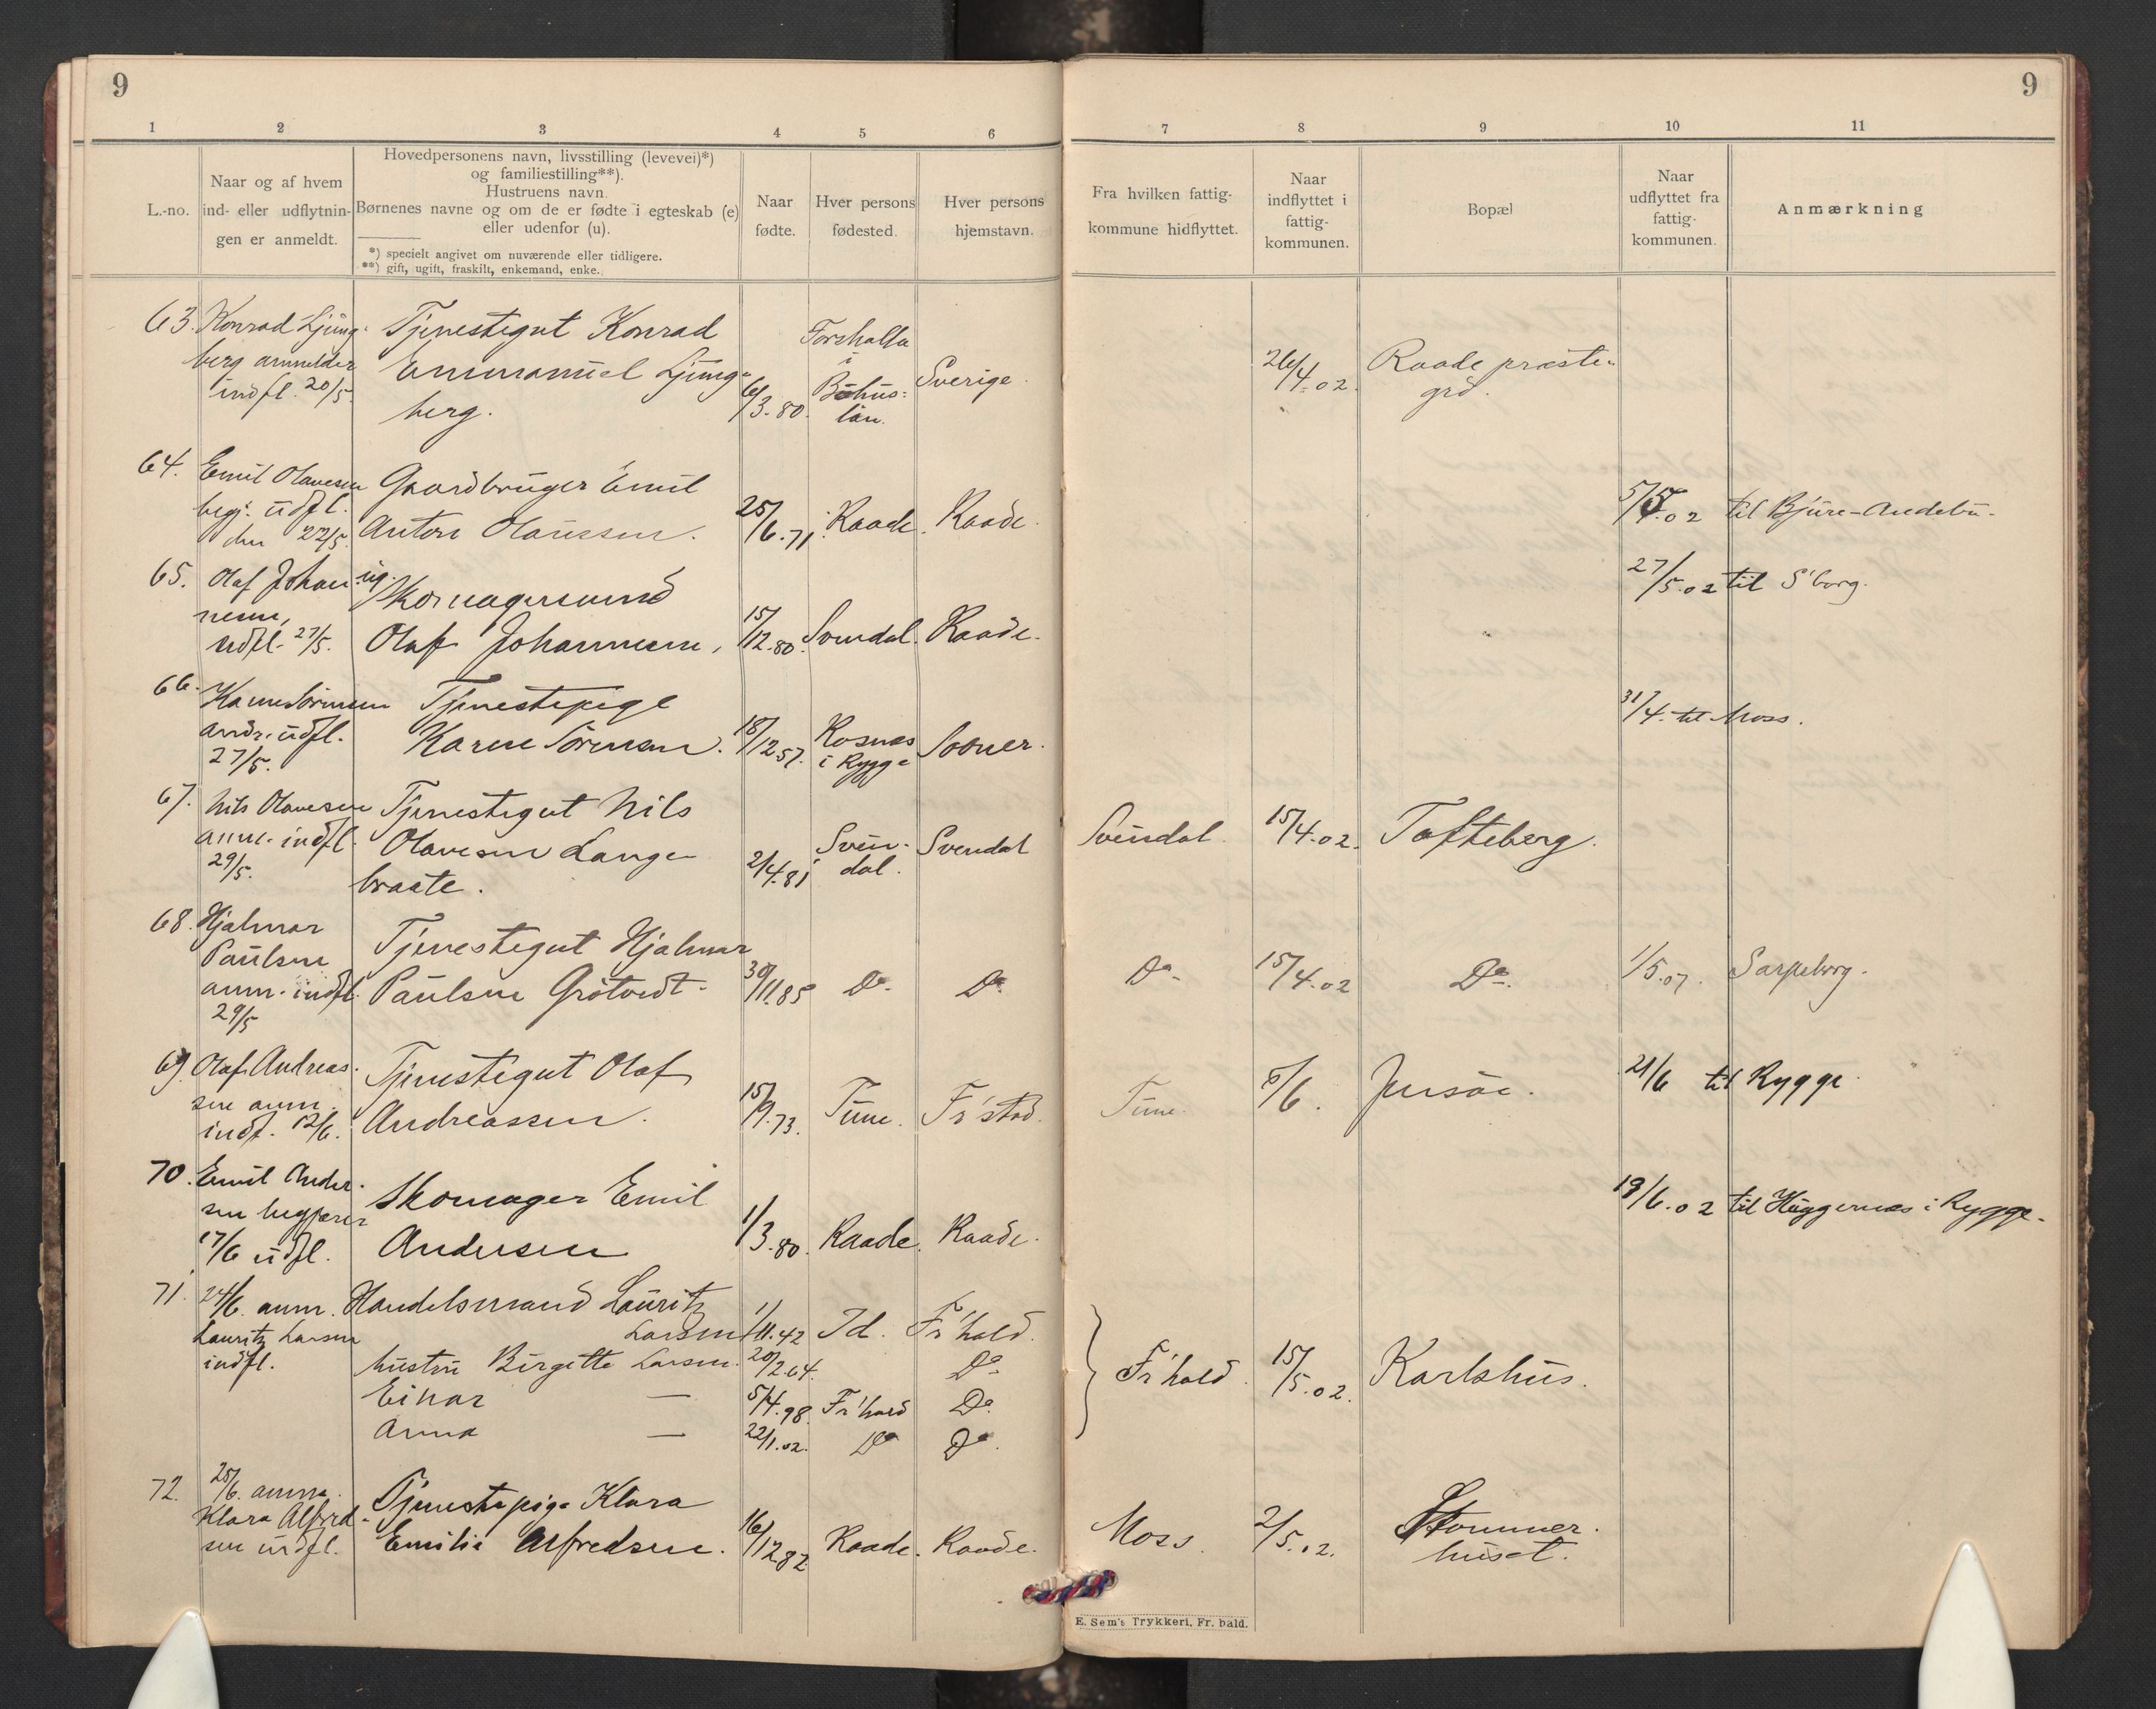 9
9
1 2 3 4 5 6 7 8 9 10 11
L.-no.
Naar og af hvem
ind- eller udflytnin-
gen er anmeldt.
Hovedpersonens navn, livsstilling (levevei)*)
og familiestilling**).
Hustruens navn.
Børnenes navne og om de er fødte i egteskab (e)
eller udenfor (u).
*) specielt angivet om nuværende eller tidligere.
**) gift, ugift, fraskilt, enkemand, enke.
Naar
fødte.
Hver persons
fødested.
Hver persons
hjemstavn.
Fra hvilken fattig-
kommune hidflyttet.
Naar
indflyttet i
fattig-
kommunen.
Bopæl
Naar
udflyttet fra
fattig-
kommunen.
Anmærkning
63. Konrad Ljung-
berg anmelder
indfl. 20/5.
Tjenestegut Konrad
Emmanuel Ljung-
berg.
6/3.80.
Forshalla
i
Bohus-
län.
Sverige.
26/4.02.
Raade præste-
grd.
64. Emil Olavesen
begj. udfl.
den 22/5.
Gaardbruger Emil
Anton Olaussen.
25/6.71.
Raade.
Raade.
5/5.02 til Bjüre-Andebu.
65. Olaf Johan-
nesen,
udfl. 27/5.
ug.
Skomagersvend
Olaf Johannesen,
15/12.80.
Svendal.
Raade.
27/5.02 til S'borg.
66. Karen Sörensen
andr. udfl.
27/5.
Tjenestepige
Karen Sörensen.
18/12 57.
Rosnæs
i Rygge
Sooner.
31/4. til Moss.
67. Nils Olavesen
anm. indfl.
29/5.
Tjenestegut Nils
Olavesen Lange-
braate.
2/4.81
Sven-
dal.
Svendal
Svendal.
15/4.02.
Tofteberg.
68. Hjalmar
Paulsen
anm. indfl.
29/5
Tjenestegut Hjalmar
Paulsen Grötvedt.
30/11.85
Do.
Do.
Do.
15/4.02
Do.
1/5.07.
Sarpsborg.
69. Olaf Andreas-
sen anm.
indf. 12/6.
Tjenestegut Olaf
Andreassen.
15/9.73.
Tune.
Fr'stad.
Tune.
5/6.
Jonsöe.
21/6 til Rygge.
70. Emil Ander-
sen begjærer
17/6 udfl.
Skomager Emil
Andersen
1/3.80.
Raade.
Raade.
19/6.02 til Huggernæs i Rygge.
71. 24/6. anm.
Lauritz Larsen
indfl.
Handelsmand Lauritz
Larsen
1/11.42
Id.
Fr'hald.
hustru Birgitte Larsen.
20/2.64.
Do
Einar —
5/4.98.
Fr'hald
Do.
Anna —
22/1.02.
Do
Do.
Fr'hald.
15/5.02.
Karlshus.
72. 25/6. anm.
Klara Alfred-
sen indfl.
Tjenestepige Klara
Emilie Alfredsen.
16/12 82
Raade.
Raade.
Moss.
2/5.02.
Stommer-
huset.
E. Sem's Trykkeri, Fr. hald.